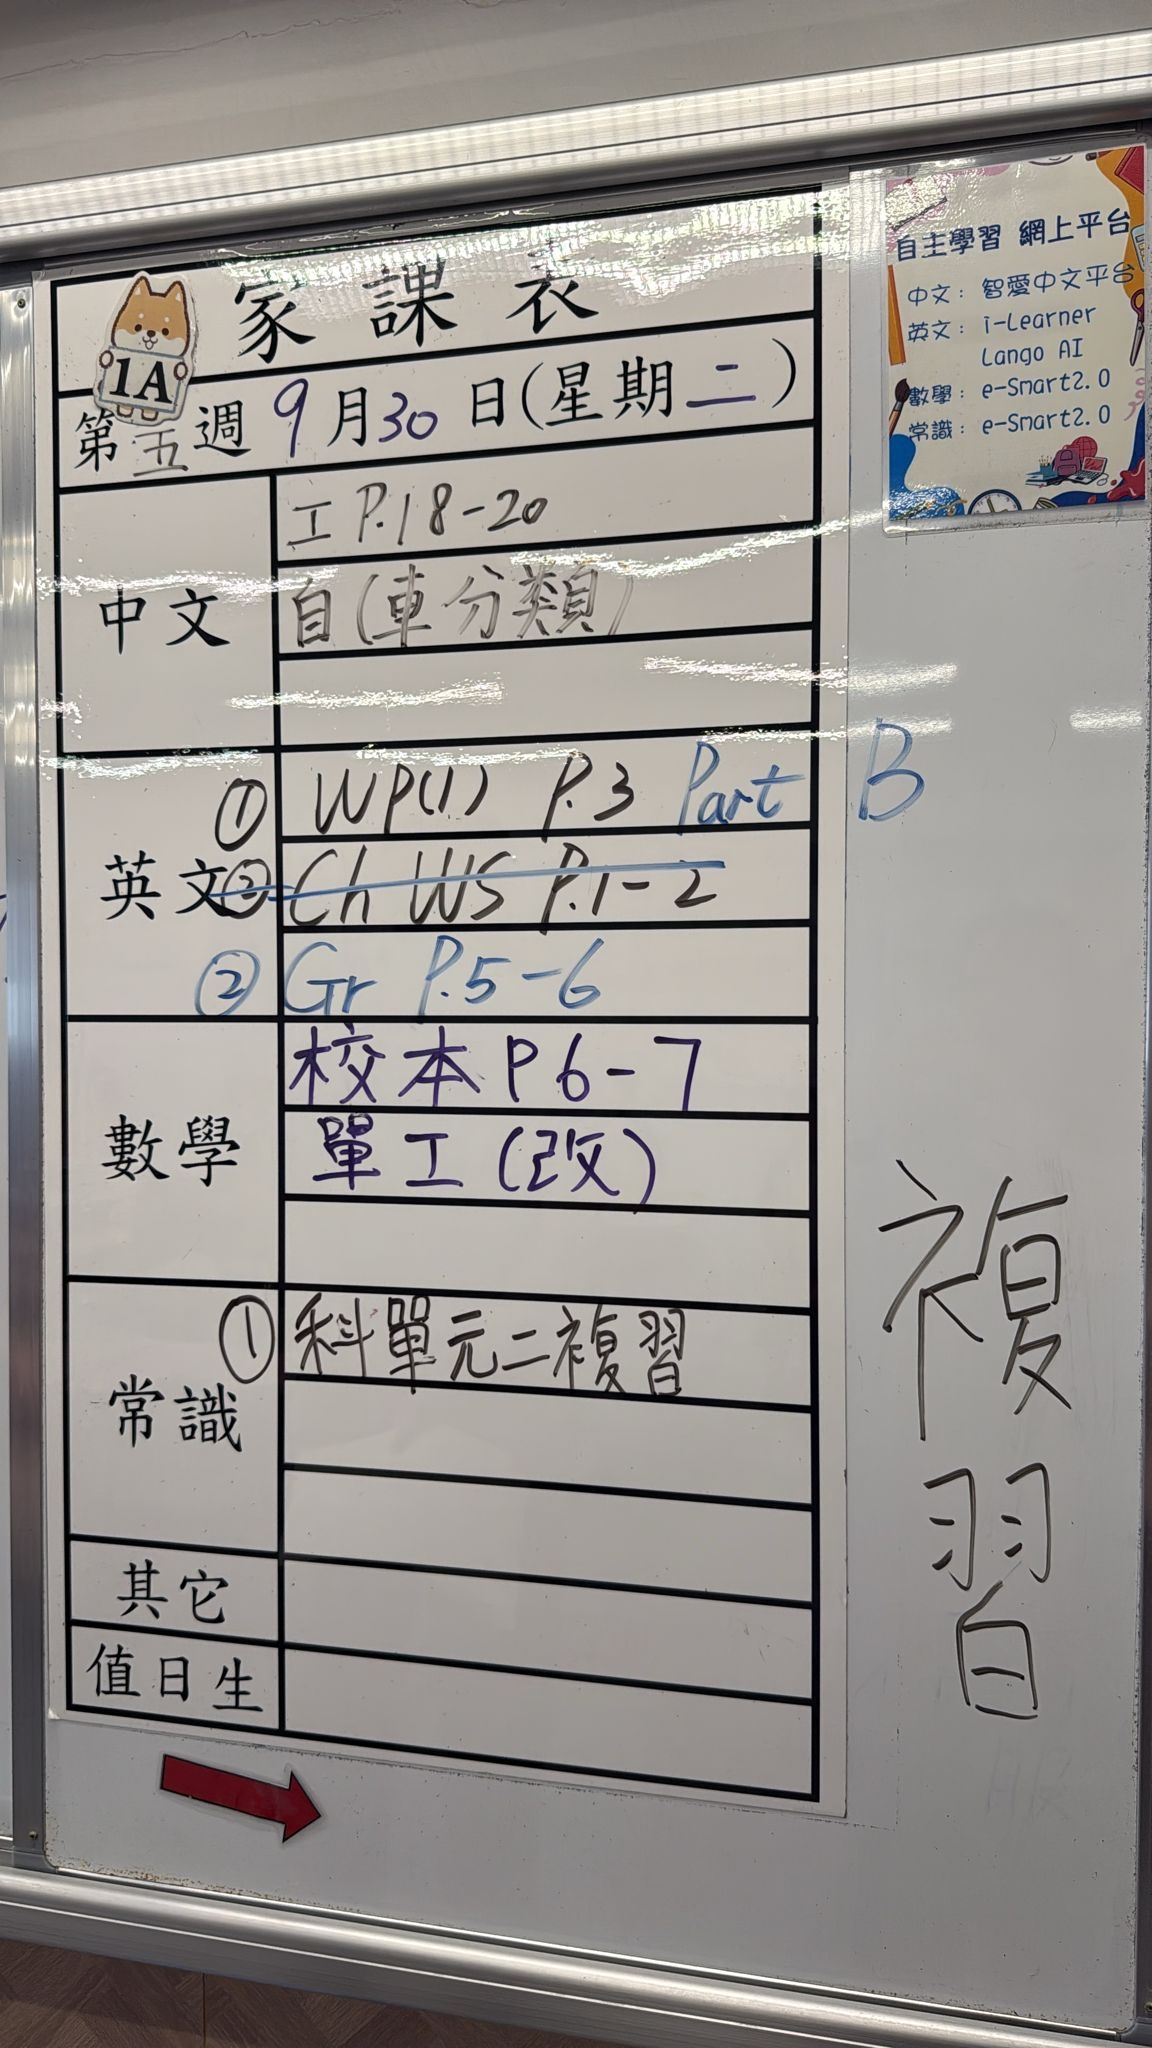 家課表
1A
第五週 9月30日(星期二)
中文
工 P.18-20
自(車分類)
英文
① WP(1) P.3 Part B
② Ch WS P.1-2
② Gr P.5-6
數學
校本 P 6-7
單工(改)
常識
① 科單元二複習
其它
值日生
自主學習 網上平台
中文: 智愛中文平台
英文: i-Learner
Lango AI
數學: e-Smart2.0
常識: e-Smart2.0
複習